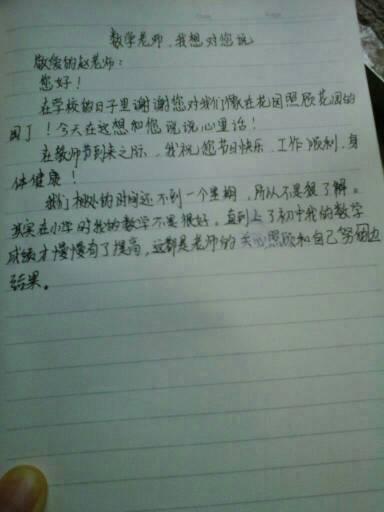 数学老师，我想对您说
敬爱的赵老师：
您好！
在学校的日子里谢谢您对我们像在花园照顾花园的
园丁！今天在这想和您说说心里话！
在教师节到来之际，我祝您节日快乐、工作顺利，身
体健康！
我们相处的时间还不到一个星期，所从不是很了解。
其实在小学时我的数学不是很好，直到上了初中我的数学
成绩才慢慢有了提高，这都是老师的关心照顾和自己努力
结果。